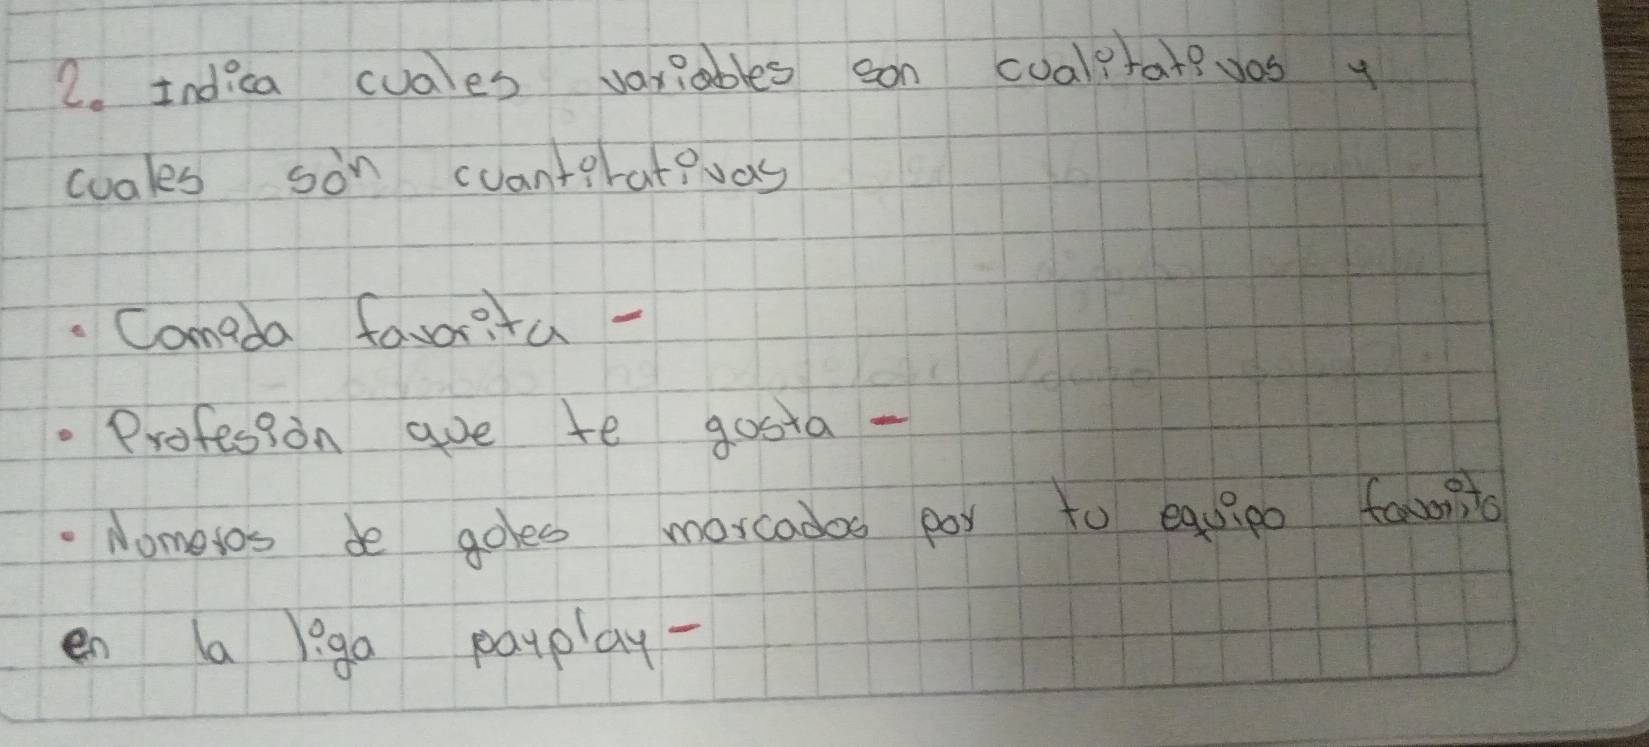 2. Indica cuales variables son cualitativas y
cuales són cuantitativas
• Comida favorita -
• Profesión que te gusta -
• Numeros de goles marcados por tu equipo favorito
en la liga payplay -